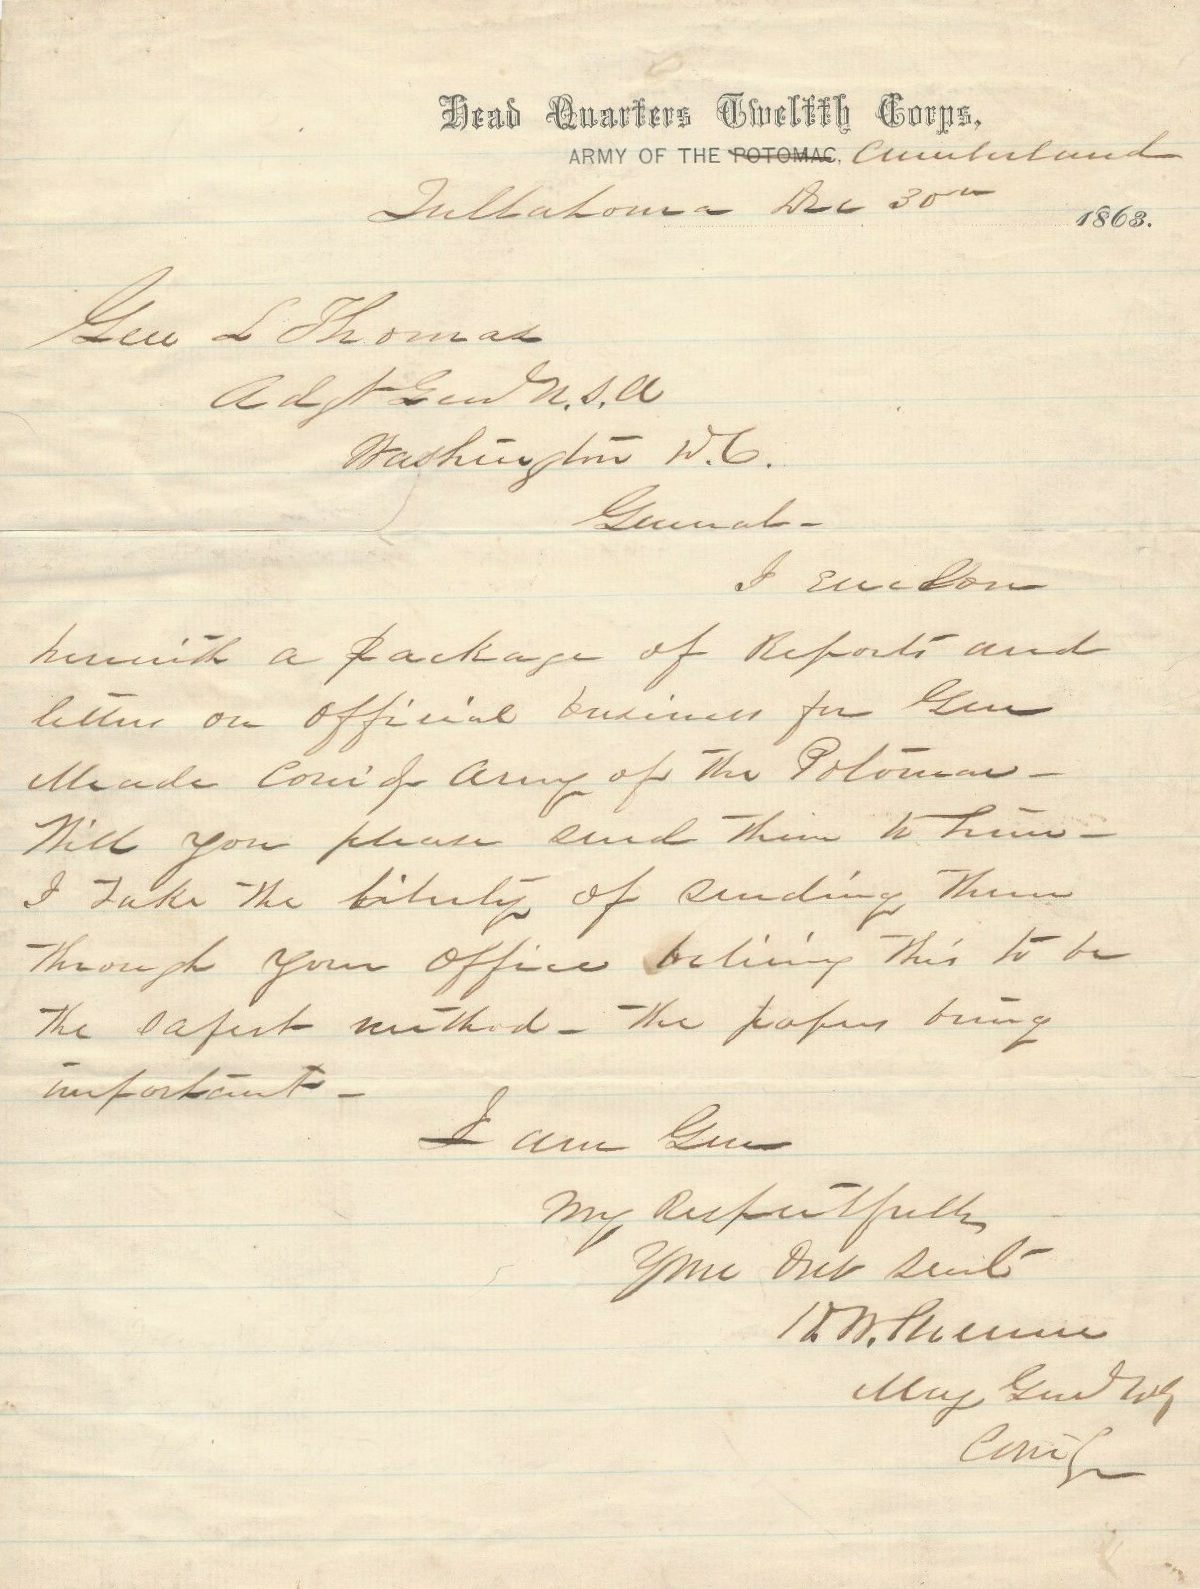 Head Quarters Twelfth Corps,
ARMY OF THE POTOMAC, Cumberland
Tullahoma Dec 30th 1863.
Gen L Thomas
Adgt Genl U.S.A
Washington D.C.
General -
I enclose
herewith a package of Reports and
letters on official business for Gen
Meade Com'dg Army of the Potomac -
Will you please send them to him -
I take the liberty of sending them
through your office believing this to be
the safest method - the papers being
important -
I am Gen
Very Respectfully
Your Obt Servt
H. W. Slocum
Maj Genl Vols
Comdg